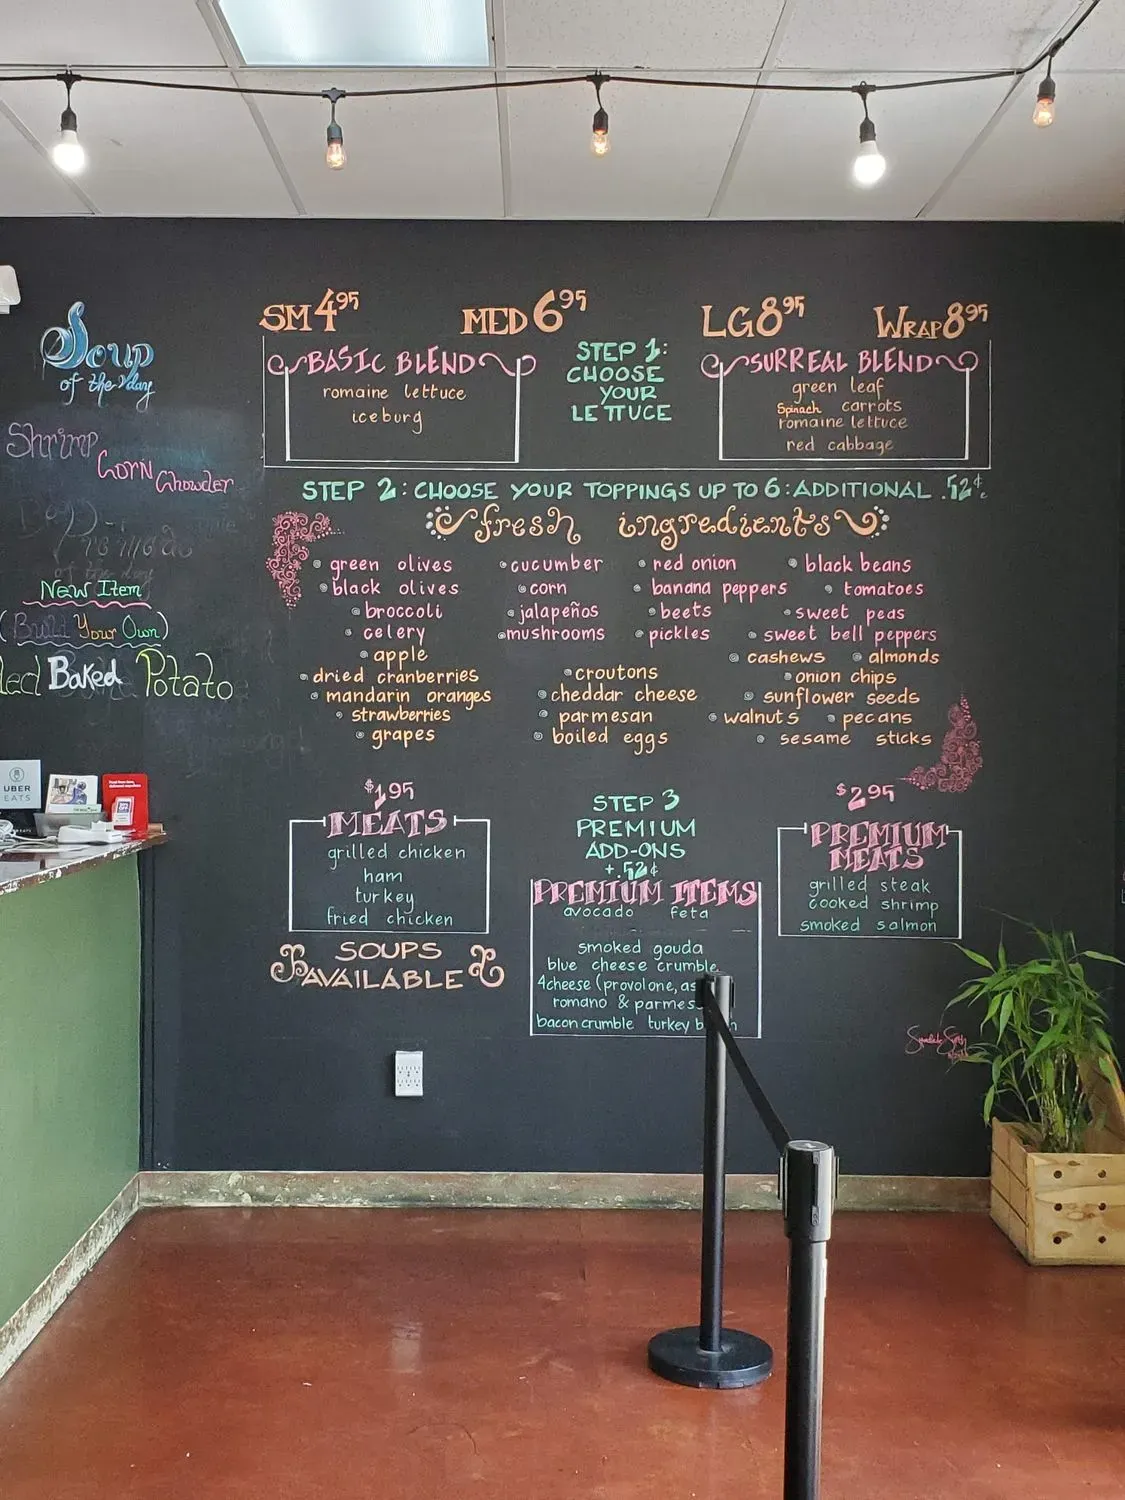 SM 4.95 MED 6.95 LG 8.95 WRAP 8.95
BASIC BLEND
romaine lettuce
iceburg
STEP 1:
CHOOSE
YOUR
LETTUCE
SURREAL BLEND
green leaf
Spinach carrots
romaine lettuce
red cabbage
STEP 2: CHOOSE YOUR TOPPINGS UP TO 6: ADDITIONAL .52¢
fresh ingredients
green olives
black olives
broccoli
celery
apple
dried cranberries
mandarin oranges
strawberries
grapes
cucumber
corn
jalapeños
mushrooms
red onion
banana peppers
beets
pickles
croutons
cheddar cheese
parmesan
boiled eggs
black beans
tomatoes
sweet peas
sweet bell peppers
cashews almonds
onion chips
sunflower seeds
walnuts pecans
sesame sticks
$1.95
MEATS
grilled chicken
ham
turkey
fried chicken
SOUPS
AVAILABLE
STEP 3
PREMIUM
ADD-ONS
+.52¢
PREMIUM ITEMS
avocado feta
smoked gouda
blue cheese crumble
4cheese (provolone,
romano &
bacon crumble turkey
$2.95
PREMIUM
MEATS
grilled steak
cooked shrimp
smoked salmon
Soup
of the day
Shrimp
Corn
Chowder
of the day
New Item
(Build Your Own)
Baked Potato
UBER
EATS